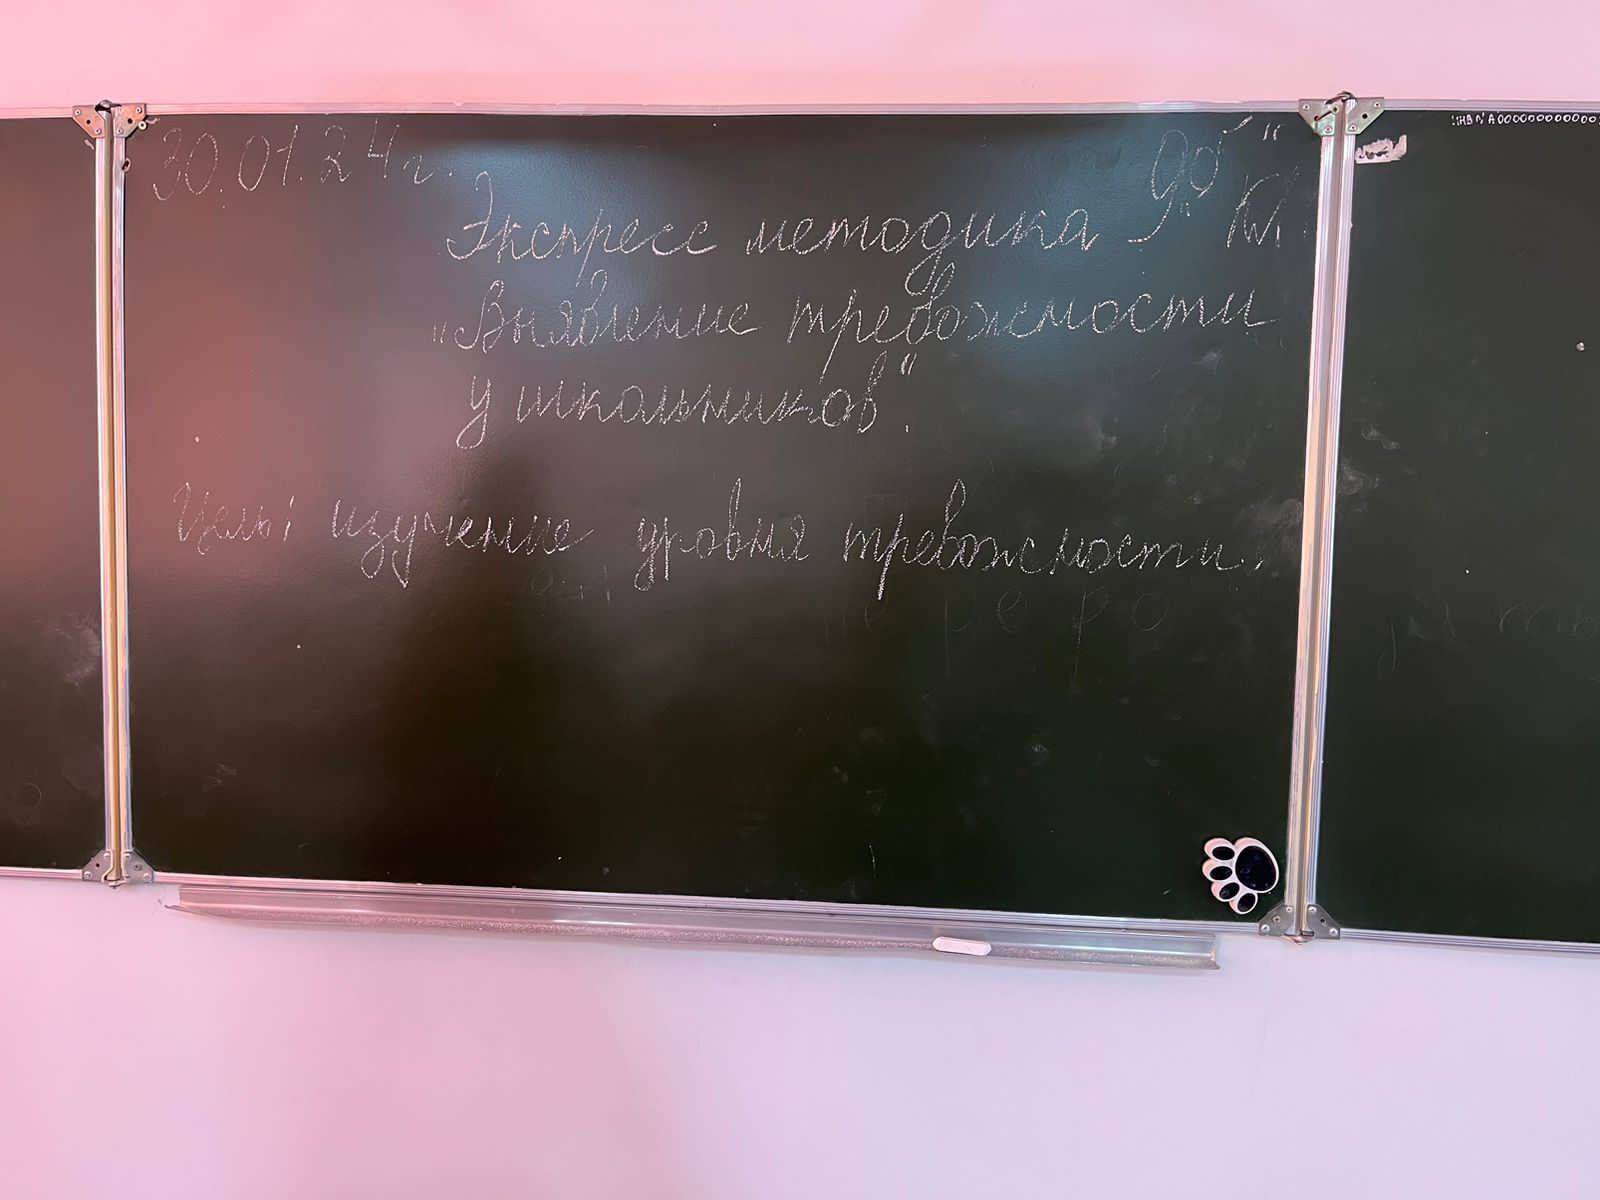 30.01.24 г.
9 „б“ кл.
Экспресс методика –
„Выявление тревожности
у школьников“.
Цель: изучение уровня тревожности.